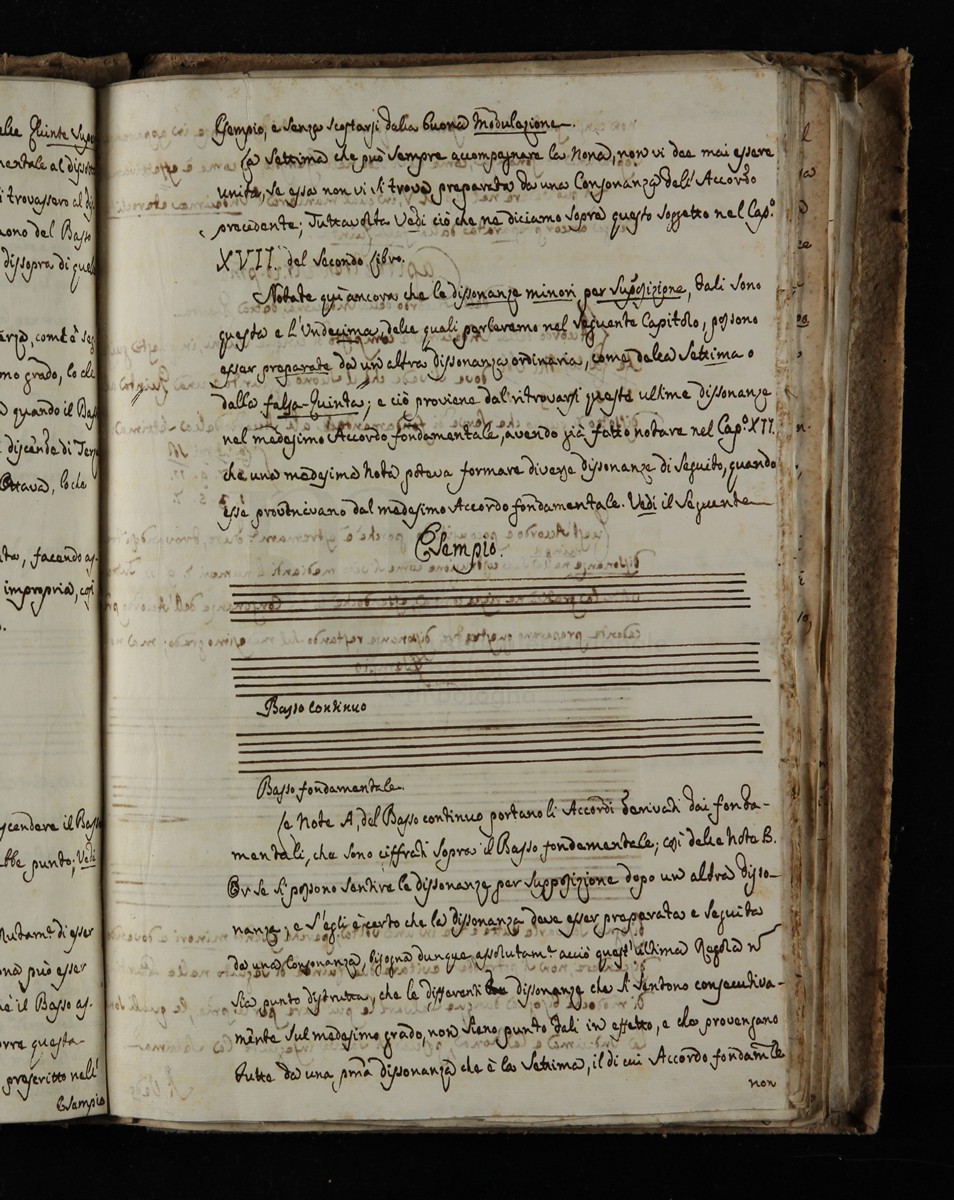 Esempio, e senza scostarsi dalla buona Modulazione.
La Settima che può sempre accompagnare la Nona, non vi dee mai essere
unita, se essa non vi si trova preparata da una Consonanza dell'Accordo
precedente; Tuttavolta Vedi ciò che ne diciamo sopra questo soggetto nel Cap.º
XVII. del Secondo Libro.
Notate quì ancora che le dissonanze minori per Supposizione, tali sono
questa e l'Undecima, delle quali parleremo nel seguente Capitolo, possono
esser preparate da un'altra dissonanza ordinaria, come dalla Settima o
dalla falsa-Quinta; e ciò proviene dal ritrovarsi queste ultime dissonanze
nel medesimo Accordo fondamentale, avendo già fatto notare nel Cap.º XII.
che una medesima Nota poteva formare diverse dissonanze di seguito, quando
esse provenivano dal medesimo Accordo fondamentale. Vedi il Seguente
Esempio.
Basso Continuo
Basso fondamentale.
Le Note A, del Basso continuo portano li Accordi derivati dai fonda-
mentali, che sono ciffrati sopra il Basso fondamentale; così delle Note B.
Or se si possono sentire le dissonanze per supposizione dopo un altra disso-
nanza; e s'egli è certo che la dissonanza deve esser preparata e seguita
da una Consonanza, bisogna dunque assolutam.e acciò quest'ultima Regola n
sia punto distrutta, che le differenti dissonanze che si sentono consecutiva-
mente sul medesimo grado, non sieno punto tali in effetto, e che provengano
tutte da una pma dissonanza che è la Settima, il di cui Accordo fondam.le
non
alle Quinte Super
mentale al dissot
i trovassero al di
uono del Basso
dissopra di quel
erza, com'è seg
mo grado, lo che
quando il Bas
discende di Ter
Ottava, lo che
ta, facendo as
impropria, così
scendere il Bas
bbe punto; Vedi
olutam.e di esser
na può esser
hè il Basso as-
orre questa
prescritto nell'
Esempio